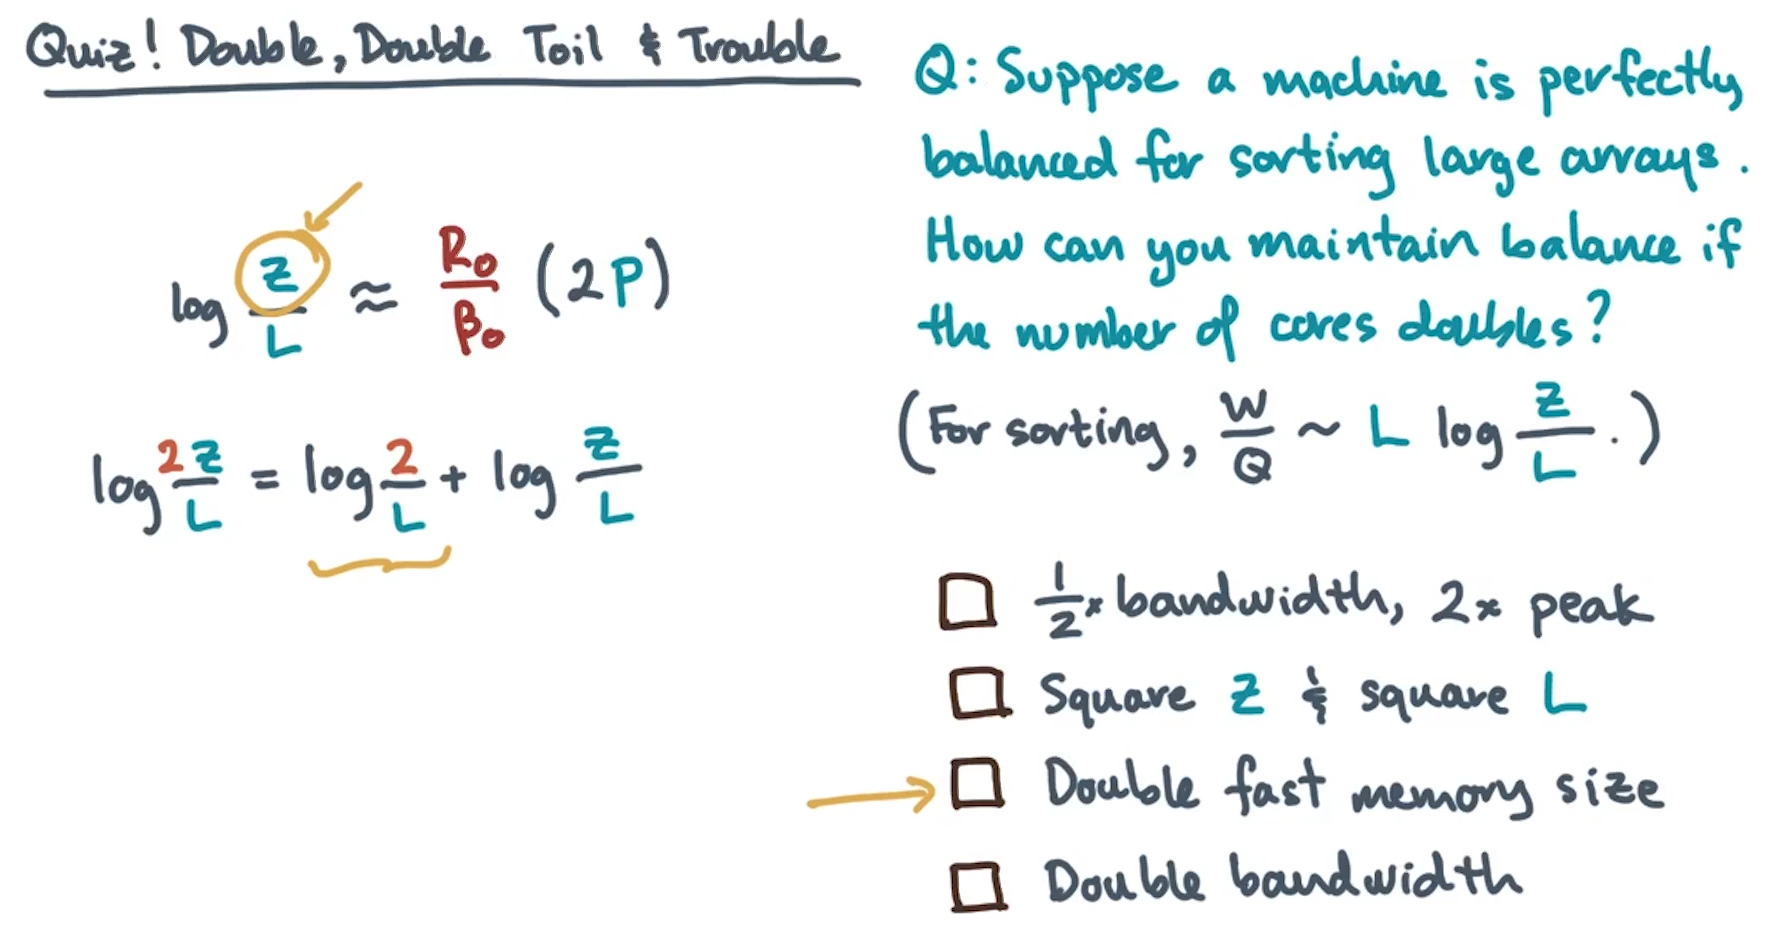 Quiz! Double, Double Toil & Trouble
log Z/L ≈ R₀/β₀ (2P)
log 2Z/L = log 2/L + log Z/L
Q: Suppose a machine is perfectly
balanced for sorting large arrays.
How can you maintain balance if
the number of cores doubles?
(For sorting, W/Q ~ L log Z/L.)
1/2x bandwidth, 2x peak
Square Z & square L
Double fast memory size
Double bandwidth